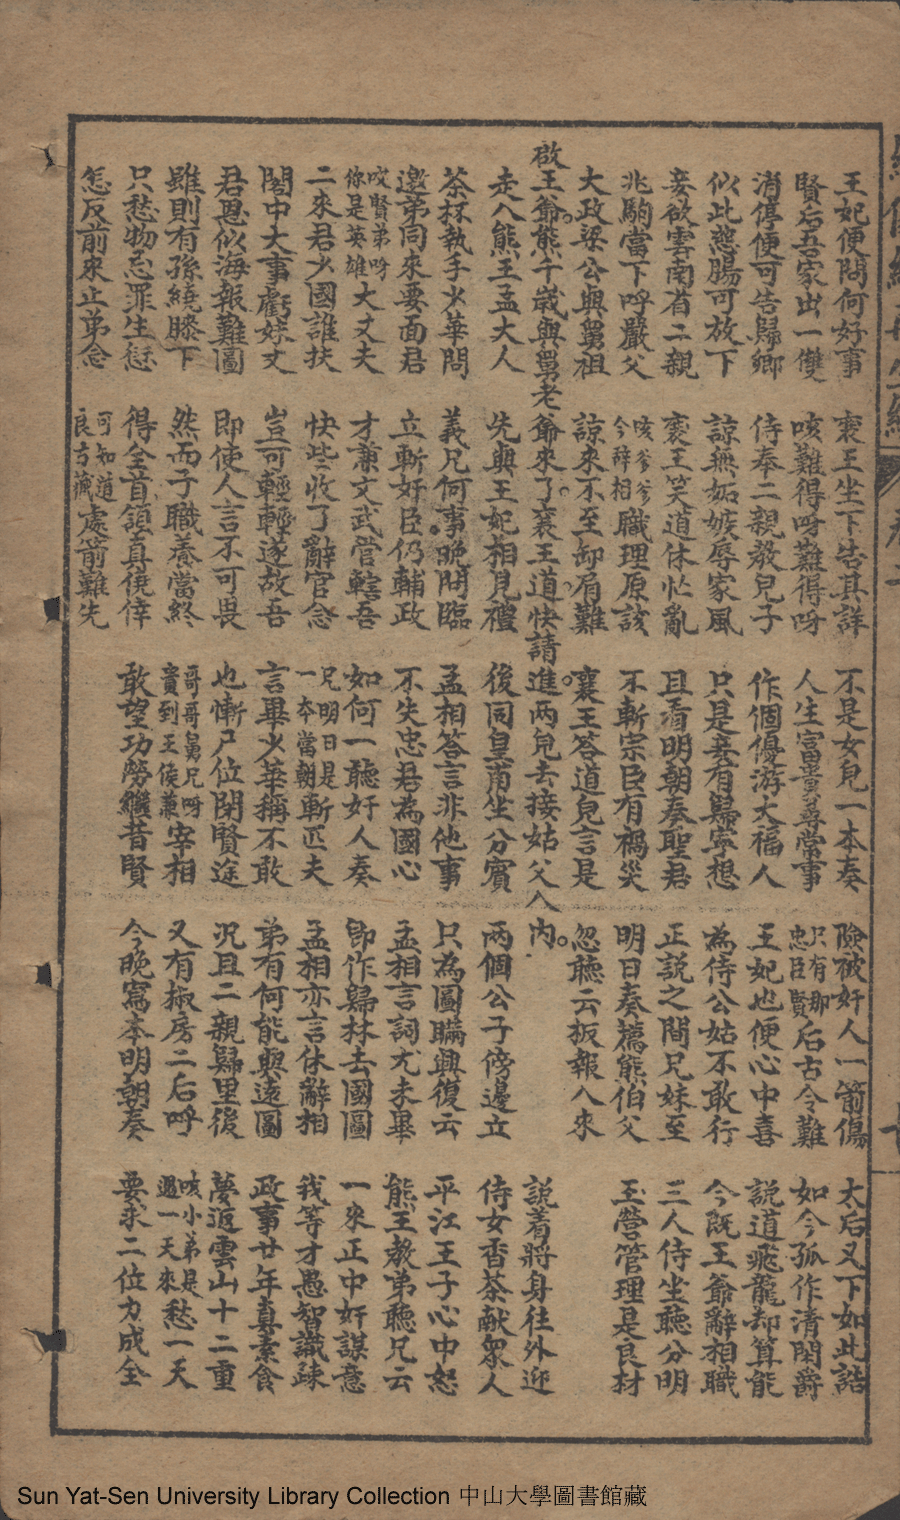 王妃便問何好事 襄王坐下告其詳 不是女兒一本奏 險被奸人一箭傷 太后又下如此誥
賢后吾家出一雙 咳難得呀難得呀 人生富貴尋常事 只有那忠臣賢后古今難 如今孤作清閑爵
消停便可告歸鄉 侍奉二親教兒子 作個優游大福人 王妃也便心中喜 說道飛龍却算能
似此慈腸可放下 諒無妬嫉辱家風 只是妾有歸寧想 為侍公姑不敢行 今既王爺辭相職
妾欲雲南省二親 襄王笑道休忙亂 且看明朝奏聖君 正説之間兄妹至 三人侍坐聽分明
兆駒當下呼嚴父 咳爹爹今辭相職理原該 不斬宗臣有禍災 明日奏薦熊伯父 玉營管理是良材
大政梁公與舅祖 諒來不至卸肩難 襄王答道兒言是 忽聽云板報入來
啟王爺。熊千歲與舅老爺來了。襄王道快請進。兩兒去接姑父入內。 說着將身往外迎
走入熊王孟大人 先與王妃相見禮 後同皇甫坐分賓 兩個公子傍邊立 侍女香茶献眾人
茶杯執手少華問 義兄何事晚間臨 孟相答言非他事 只為圖瞞興復云 平江王子心中恕
邀弟同來要面君 立斬奸臣仍輔政 不失忠君為國心 孟相言詞尤未畢 熊王教弟聽兄云
哎賢弟呀你是英雄大丈夫 才兼文武當轄吾 如何一聽奸人奏 卽作歸林去國圖 一來正中奸謀意
二來君少國誰扶 快些收了辭官念 兄明日是一本當朝斬匹夫 孟相亦言休辭相 我等才愚智識疎
閣中大事虧妹丈 豈可輕輕遂故吾 言畢少華稱不敢 弟有何能興遠圖 政事廿年真素食
君恩似海報難圖 即使人言不可畏 也慚尸位閉賢途 况且二親歸里後 夢返雲山十二重
雖則有孫繞膝下 然而子職養當終 哥哥舅兄呀賁到王侯兼宰相 又有椒房二后呼 咳小弟是過一天來愁一天
只愁物忌罪生愆 得全首領真僥倖 敢望功勞繼昔賢 今晚寫本明朝奏 要求二位力成全
怎反前來止弟念 可知道良弓藏處箭難先
Sun Yat-Sen University Library Collection 中山大學圖書館藏